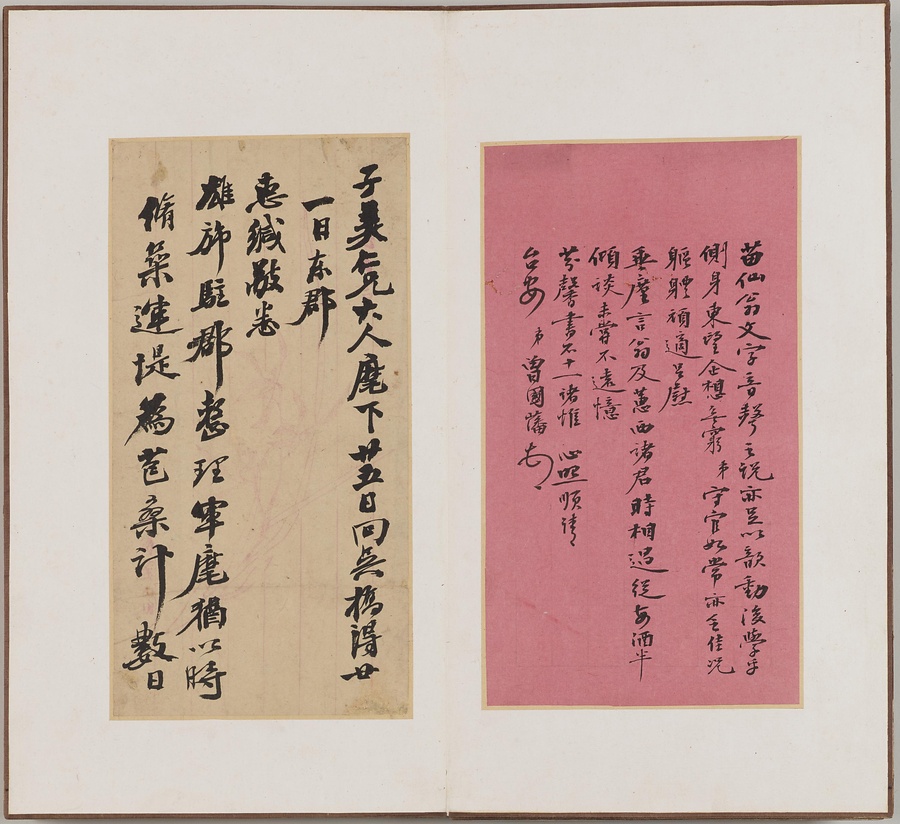 苗仙翁文字音聲之説亦足以歆動後學乎
側身東望企想無窮弟守官如常亦無佳況
軀體頑適足慰
垂廑言翁及蕙西諸君時相過從每酒半
傾談未嘗不遠憶
芬馨書不十一諸惟心照順請
台安弟曾國藩頓
子美仁兄大人麾下廿五日回吳橋得廿
一日東郡
惠緘敬悉
雄旆駐郡整理軍麾猶以時
脩築運堤爲苞桑計數日